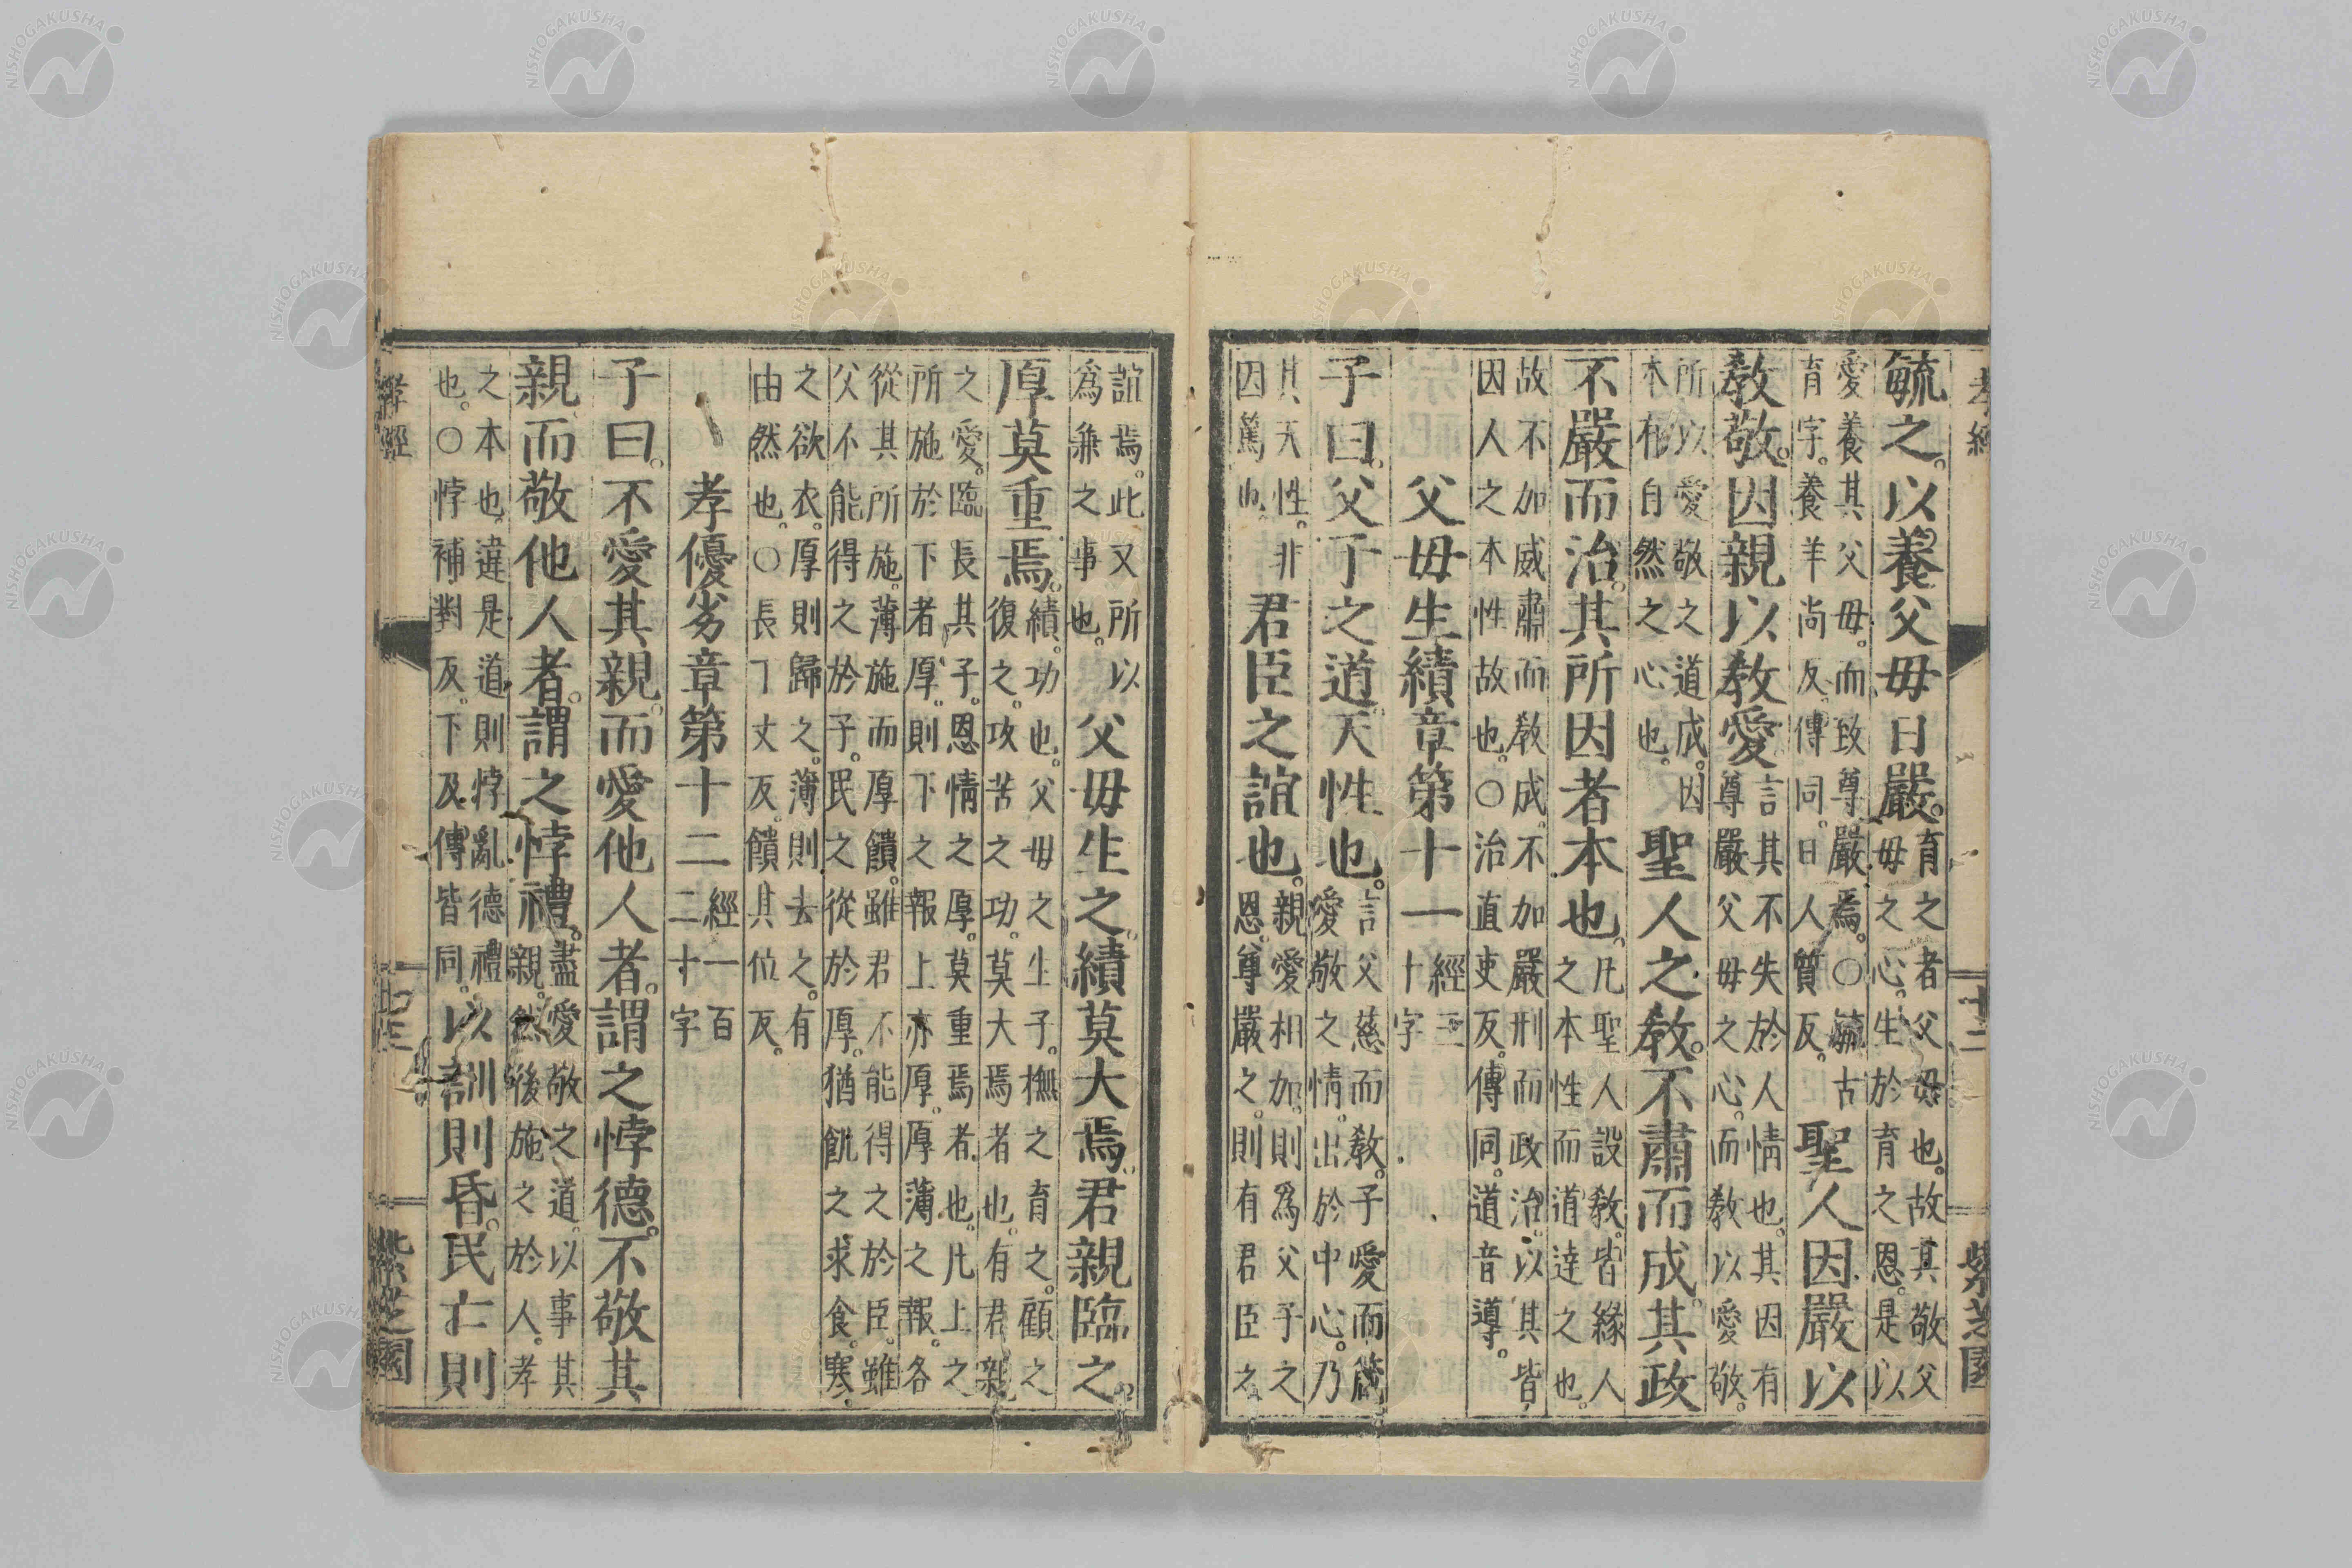 孝經 十二 紫芝園
毓之。以養父母日嚴。育之者父母也。故其敬父
母之心。生於育之恩。是以
愛養其父母。而致尊嚴焉。○毓古
育字。養羊尚反。傳同。日人質反。
聖人因嚴以
教敬。因親以教愛。言其不失於人情也。其因有
尊嚴父母之心。而教以愛敬。
所以愛敬之道成。因
本有自然之心也。
聖人之教。不肅而成。其政
不嚴而治。其所因者本也。凡聖人設教。皆緣人
之本性而道達之也。
故不加威肅而教成。不加嚴刑而政治。以其皆
因人之本性故也。○治直吏反。傳同。道音導。
父母生績章第十一 經三
十字
子曰。父子之道天性也。言父慈而教。子愛而箴。
愛敬之情。出於中心。乃
其天性。非
因篤也。
君臣之誼也。親愛相加。則爲父子之
恩。尊嚴之。則有君臣之
誼焉。此又所以
爲兼之事也。
父母生之。績莫大焉。君親臨之。
厚莫重焉。績。功也。父母之生子。撫之育之。顧之
復之。攻苦之功。莫大焉者也。有君親
之愛。臨長其子。恩情之厚。莫重焉者也。凡上之
所施於下者厚。則下之報上亦厚。厚薄之報。各
從其所施。薄施而厚饋。雖君不能得之於臣。雖
父不能得之於子。民之從於厚。猶飢之求食。寒
之欲衣。厚則歸之。薄則去之。有
由然也。○長丁丈反。饋其位反。
孝優劣章第十二 經一百
二十字
子曰。不愛其親。而愛他人者。謂之悖德。不敬其
親而敬他人者。謂之悖禮。盡愛敬之道。以事其
親。然後施之於人。孝
之本也。違是道則悖亂德禮
也。○悖補對反。下及傳皆同。
以訓則昏。民亡則
孝經 紫芝園
NISHOGAKUSHA